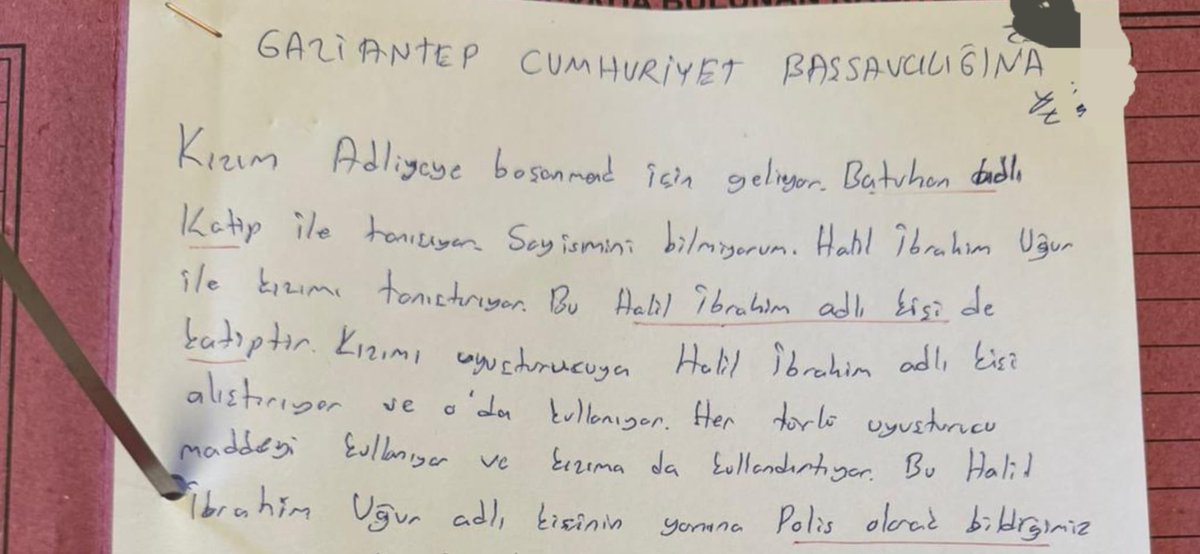 BULUNAN
GAZİANTEP CUMHURİYET BAŞSAVCILIĞINA
Kızım Adliyeye boşanmak için geliyor. Batuhan adlı
Katip ile tanışıyor. Soyismini bilmiyorum. Halil İbrahim Uğur
ile kızımı tanıştırıyor. Bu Halil İbrahim adlı kişi de
katiptir. Kızımı uyuşturucuya Halil İbrahim adlı kişi
alıştırıyor ve o'da kullanıyor. Her türlü uyuşturucu
maddeyi kullanıyor ve kızıma da kullandırtıyor. Bu Halil
İbrahim Uğur adlı kişinin yanına Polis olarak bildiğimiz